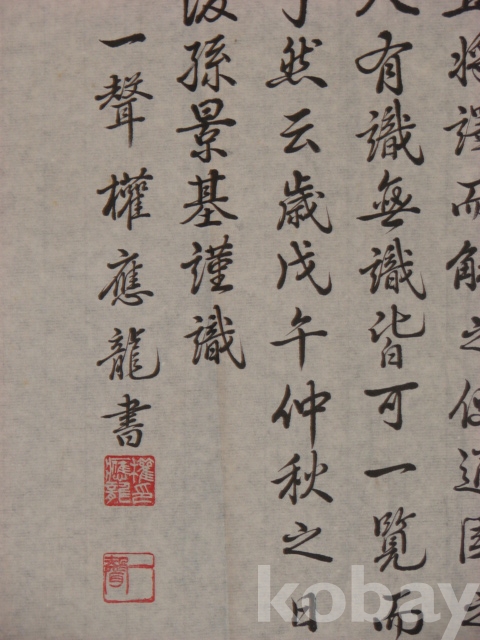 且將譯而解之但通国之
人有識無識皆可一覽而
了然云歲戊午仲秋之日
後孫景基謹識
一聲權應龍書
權應龍印
一聲
kobay